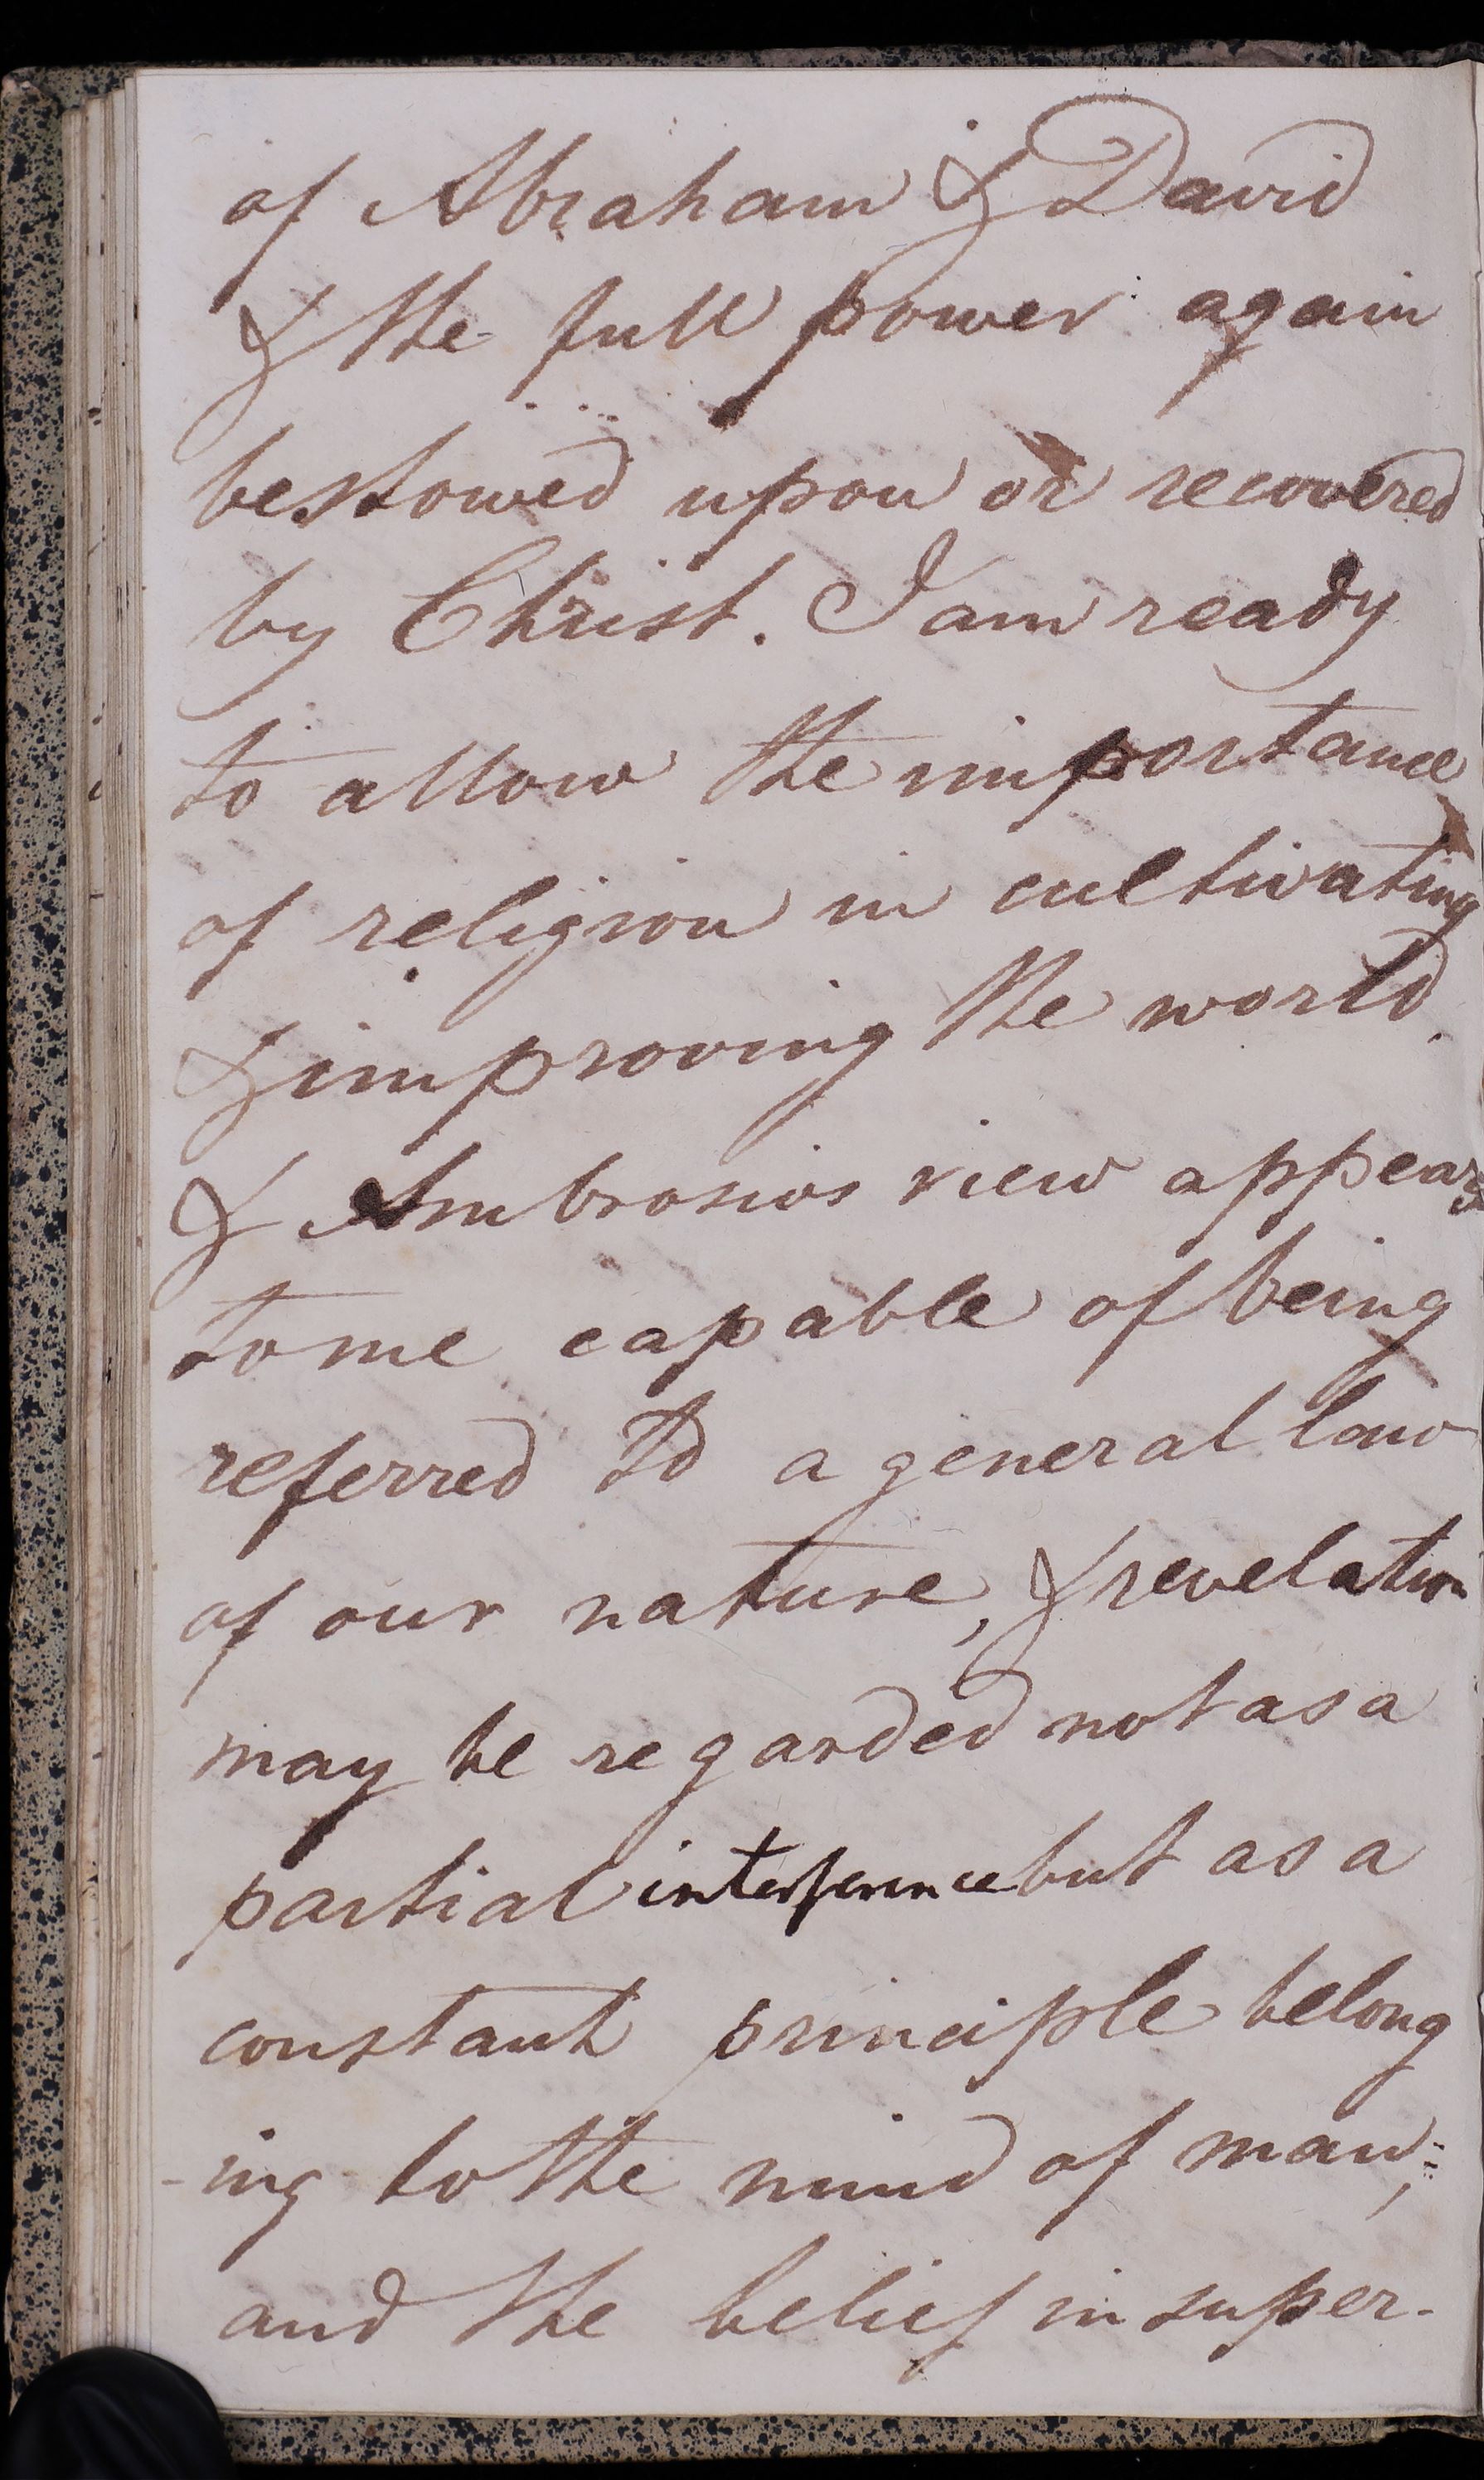 of Abraham & David
& the full power again
bestowed upon or recovered
by Christ. I am ready
to allow the importance
of religion in cultivating
& improving the world.
& Ambrosios view appears
to me capable of being
referred to a general law
of our nature, & revelation
may be regarded not as a
partial interference but as a
constant principle belong
-ing to the mind of man;
and the belief in super-